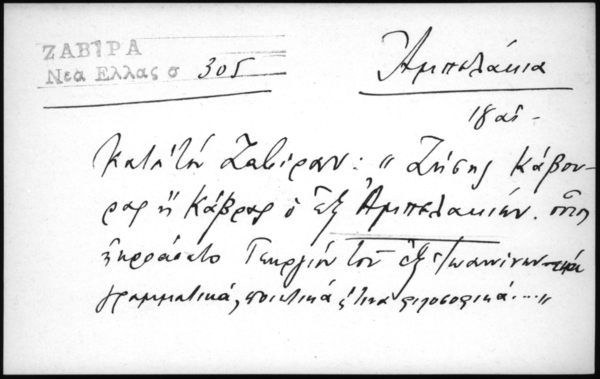 ΖΑΒΙΡΑ
Νέα Ελλας σ 305
Ἀμπελάκια
ΙΗ αἰ –
Κατὰ τὸν Ζαβίραν: „ Ζήσης Κάβου-
ρας ἢ Κάβρας ὁ ἐξ Ἀμπελακιών. οὗτος
ἠκροάσατο Γεωργίου τοῦ ἐξ Ἰωαννίνων
γραμματικά, ποιητικά ἔτινα φιλοσοφικά...."